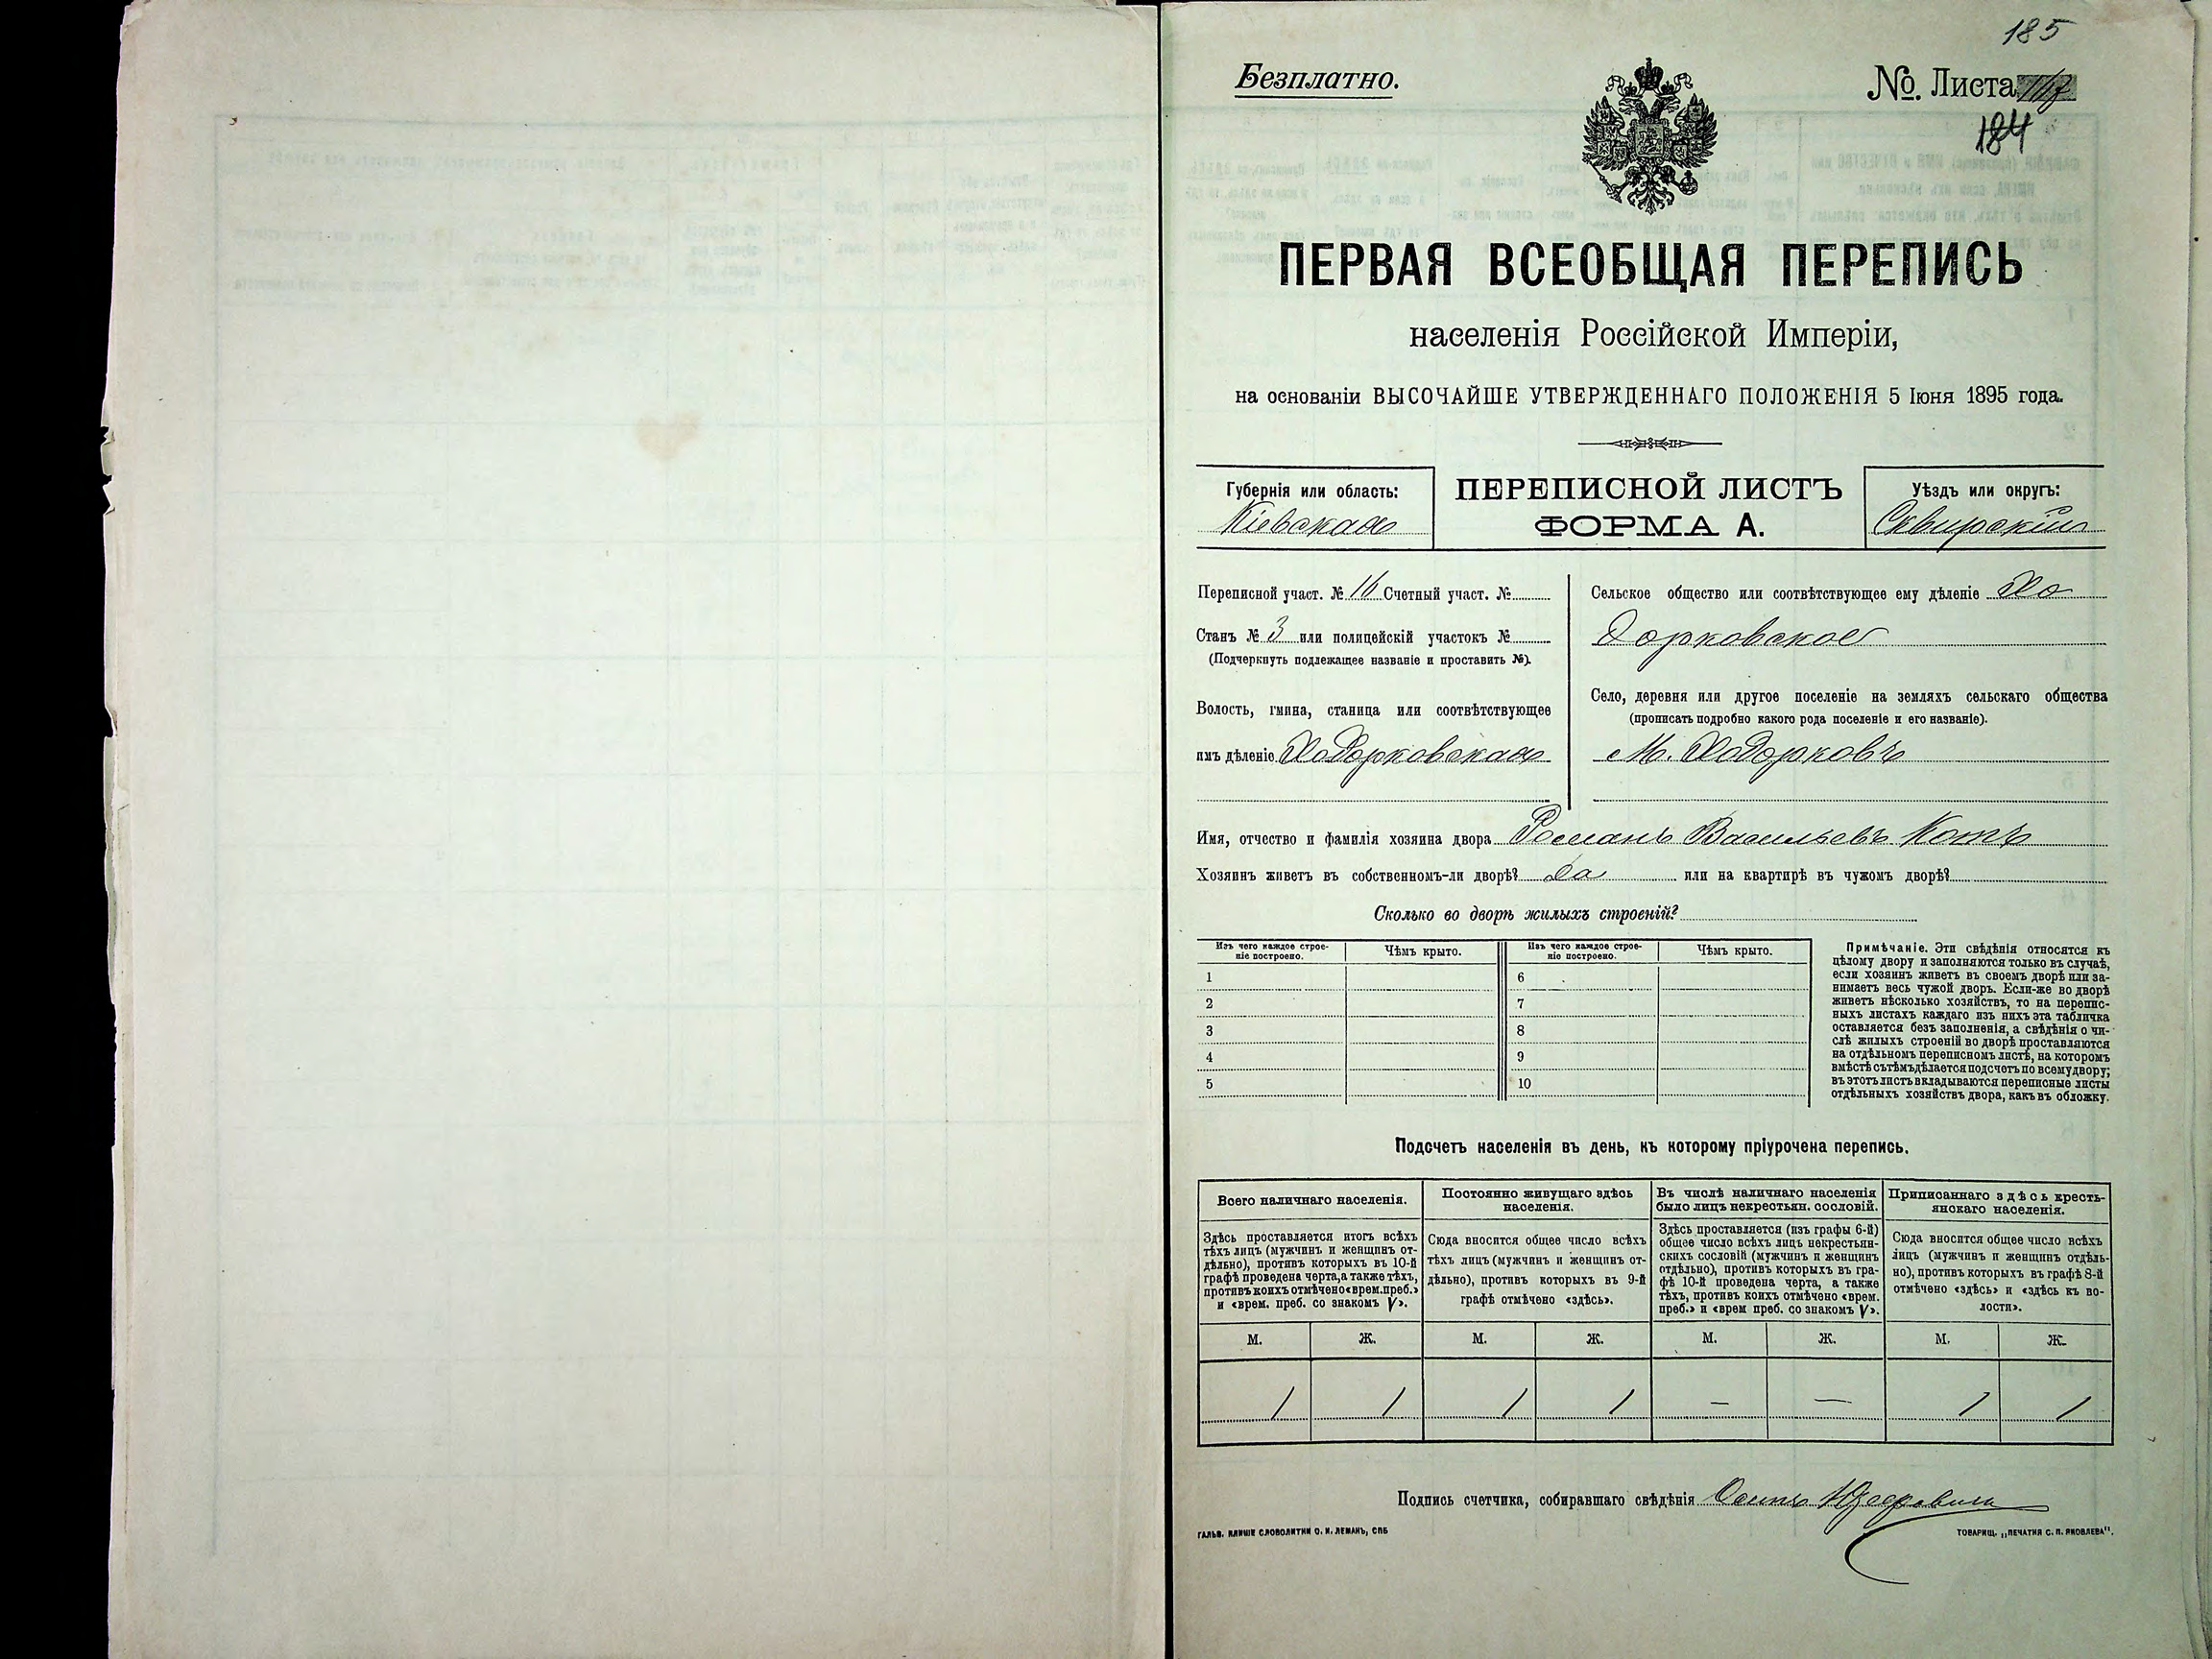 185
Безплатно.
№. Листа
184
ПЕРВАЯ ВСЕОБЩАЯ ПЕРЕПИСЬ
населенія Россійской Имперіи,
на основаніи ВЫСОЧАЙШЕ УТВЕРЖДЕННАГО ПОЛОЖЕНІЯ 5 Іюня 1895 года.
Губернія или область:
Кіевская
ПЕРЕПИСНОЙ ЛИСТЪ
ФОРМА А.
Уѣздъ или округъ:
Сквирскій
Переписной участ. № 16 Счетный участ. №
Станъ № 3 или полицейскій участокъ №
(Подчеркнуть подлежащее названіе и проставить №).
Волость, гмина, станица или соотвѣтствующее
имъ дѣленіе Ходорковская
Сельское общество или соотвѣтствующее ему дѣленіе Хо
дорковское
Село, деревня или другое поселеніе на земляхъ сельскаго общества
(прописать подробно какого рода поселеніе и его названіе).
М. Ходорковъ
Имя, отчество и фамилія хозяина двора Романъ Васильевъ Котъ
Хозяинъ живетъ въ собственномъ-ли дворѣ? Да или на квартирѣ въ чужомъ дворѣ?
Сколько во дворѣ жилыхъ строеній?
Изъ чего каждое строе-
ніе построено.
Чѣмъ крыто.
Изъ чего каждое строе-
ніе построено.
Чѣмъ крыто.
1 6
2 7
3 8
4 9
5 10
Примѣчаніе. Эти свѣдѣнія относятся къ
цѣлому двору и заполняются только въ случаѣ,
если хозяинъ живетъ въ своемъ дворѣ или за-
нимаетъ весь чужой дворъ. Если-же во дворѣ
живетъ нѣсколько хозяйствъ, то на перепис-
ныхъ листахъ каждаго изъ нихъ эта табличка
оставляется безъ заполненія, а свѣдѣнія о чи-
слѣ жилыхъ строеній во дворѣ проставляются
на отдѣльномъ переписномъ листѣ, на которомъ
вмѣстѣ съ тѣмъ дѣлается подсчетъ по всему двору;
въ этотъ листъ вкладываются переписные листы
отдѣльныхъ хозяйствъ двора, какъ въ обложку.
Подсчетъ населенія въ день, къ которому пріурочена перепись.
Всего наличнаго населенія.
Здѣсь проставляется итогъ всѣхъ
тѣхъ лицъ (мужчинъ и женщинъ от-
дѣльно), противъ которыхъ въ 10-й
графѣ проведена черта, а также тѣхъ,
противъ коихъ отмѣчено «врем. преб.»
и «врем. преб. со знакомъ V».
Постоянно живущаго здѣсь
населенія.
Сюда вносится общее число всѣхъ
тѣхъ лицъ (мужчинъ и женщинъ от-
дѣльно), противъ которыхъ въ 9-й
графѣ отмѣчено «здѣсь».
Въ числѣ наличнаго населенія
было лицъ некрестьян. сословій.
Здѣсь проставляется (изъ графы 6-й)
общее число всѣхъ лицъ некрестьян-
скихъ сословій (мужчинъ и женщинъ
отдѣльно), противъ которыхъ въ гра-
фѣ 10-й проведена черта, а также
тѣхъ, противъ коихъ отмѣчено «врем.
преб.» и «врем преб. со знакомъ V».
Приписаннаго здѣсь кресть-
янскаго населенія.
Сюда вносится общее число всѣхъ
лицъ (мужчинъ и женщинъ отдѣль-
но), противъ которыхъ въ графѣ 8-й
отмѣчено «здѣсь» и «здѣсь къ во-
лости».
М. Ж. М. Ж. М. Ж. М. Ж.
1 1 1 1 — — 1 1
Подпись счетчика, собиравшаго свѣдѣнія Осипъ
ГАЛЬВ. КЛИШЕ СЛОВОЛИТНИ О. И. ЛЕМАНЪ, СПБ
ТОВАРИЩ. „ПЕЧАТНЯ С. П. ЯКОВЛЕВА".